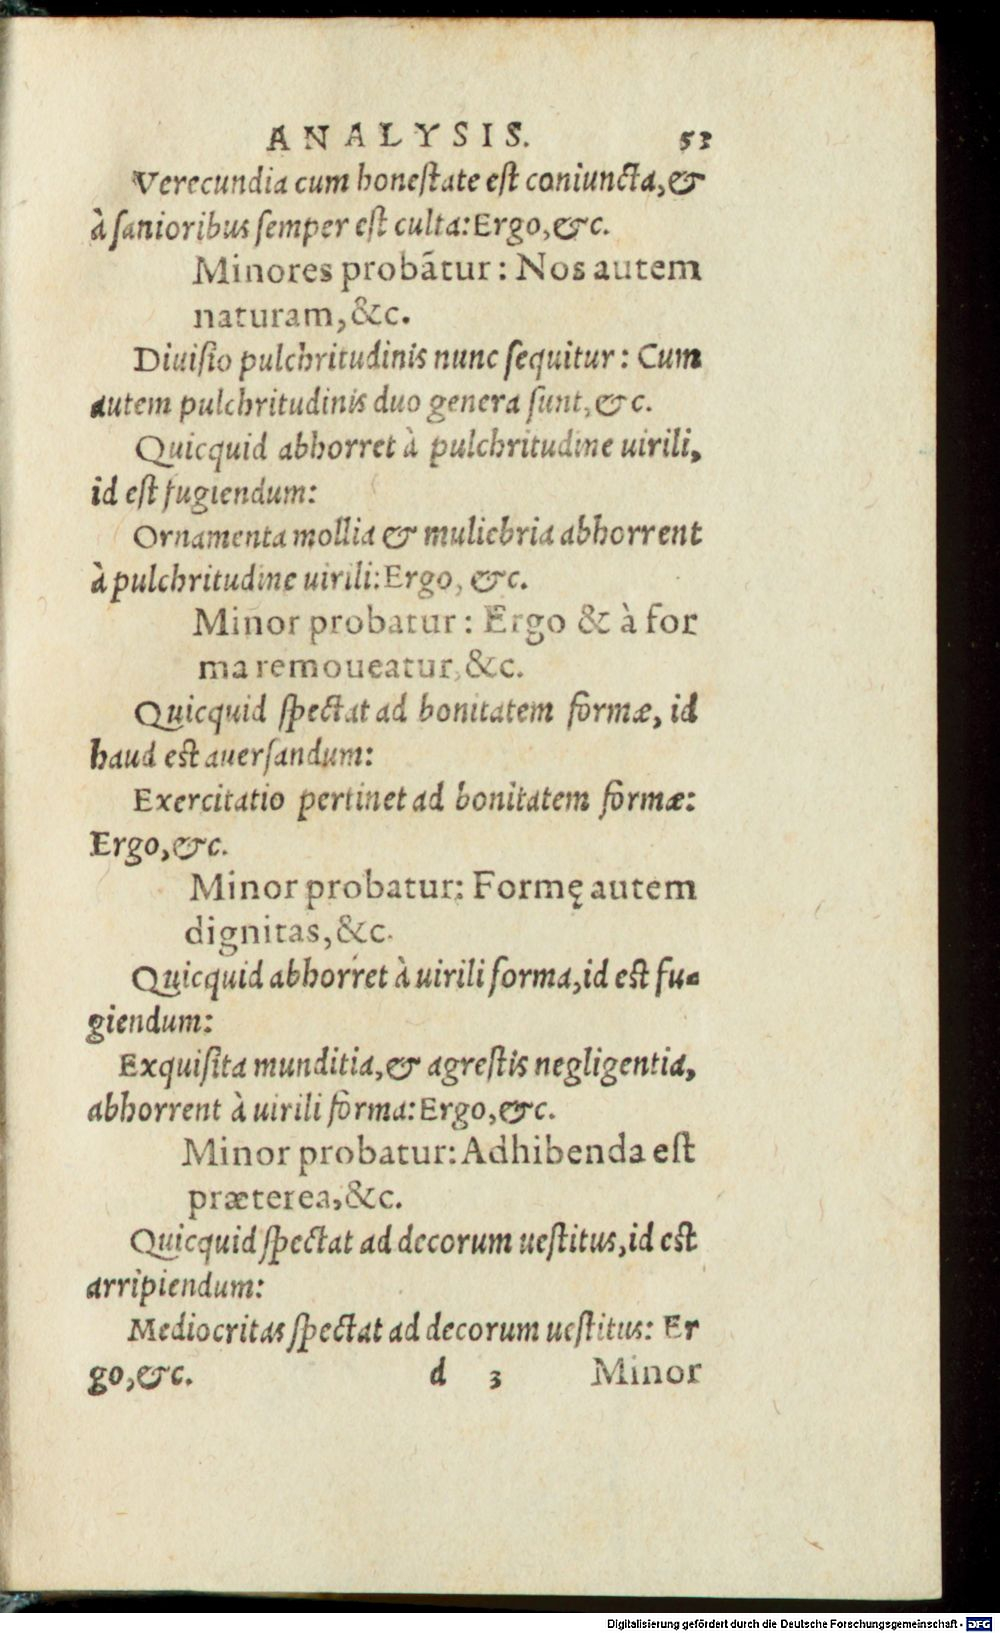 ANALYSIS. 53
Verecundia cum honestate est coniuncta, &
à sanioribus semper est culta: Ergo, &c.
Minores probãtur: Nos autem
naturam, &c.
Diuisio pulchritudinis nunc sequitur: Cum
autem pulchritudinis duo genera sunt, &c.
Quicquid abhorret à pulchritudine uirili,
id est fugiendum:
Ornamenta mollia & muliebria abhorrent
à pulchritudine uirili: Ergo, &c.
Minor probatur: Ergo & à for
ma remoueatur, &c.
Quicquid spectat ad bonitatem formæ, id
haud est auersandum:
Exercitatio pertinet ad bonitatem formæ:
Ergo, &c.
Minor probatur: Formę autem
dignitas, &c.
Quicquid abhorret à uirili forma, id est fu-
giendum:
Exquisita munditia, & agrestis negligentia,
abhorrent à uirili forma: Ergo, &c.
Minor probatur: Adhibenda est
præterea, &c.
Quicquid spectat ad decorum uestitus, id est
arripiendum:
Mediocritas spectat ad decorum uestitus: Er
go, &c. d 3 Minor
Digitalisierung gefördert durch die Deutsche Forschungsgemeinschaft - DFG